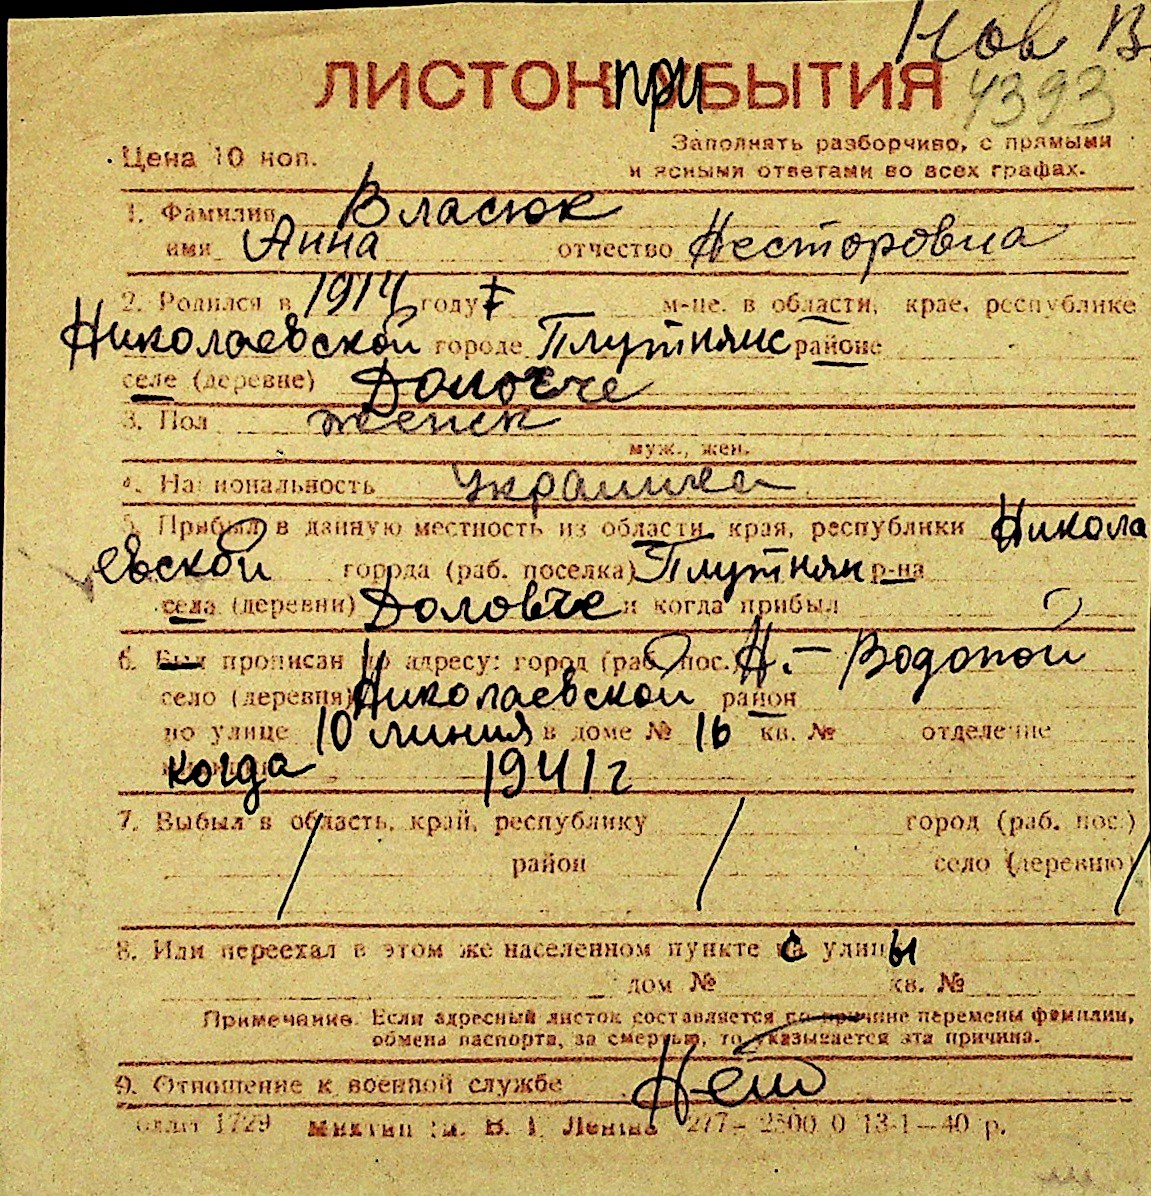 Нов В.
ЛИСТОК ПРИБЫТИЯ
4393
Цена 10 коп.
Заполнять разборчиво, с прямыми
и ясными ответами во всех графах.
1. Фамилия Власюк
имя Анна отчество Несторовна
2. Родился в 1914 году м-це. в области, крае, республике
Николаевской городе Плутнянс районе
селе (деревне)
3. Пол женск
муж., жен.
4. Национальность Украинка
5. Прибыл в данную местность из области, края, республики Никола
евской города (раб. поселка) Плутнян р-на
села (деревни) Доловче и когда прибыл
6. Был прописан по адресу: город (раб. пос.) Н.-Водопой
село (деревня) Николаевской район
по улице 10 линия в доме № 16 кв. № отделение
когда 1941 г
7. Выбыл в область, край, республику город (раб. пос.)
район село (деревню)
8. Или переехал в этом же населенном пункте с улицы
дом № кв. №
Примечание. Если адресный листок составляется по причине перемены фамилии,
обмена паспорта, за смертью, то указывается эта причина.
9. Отношение к военной службе Нет
1729 В. І. Леніна 277-2500 0 13-1-40 р.